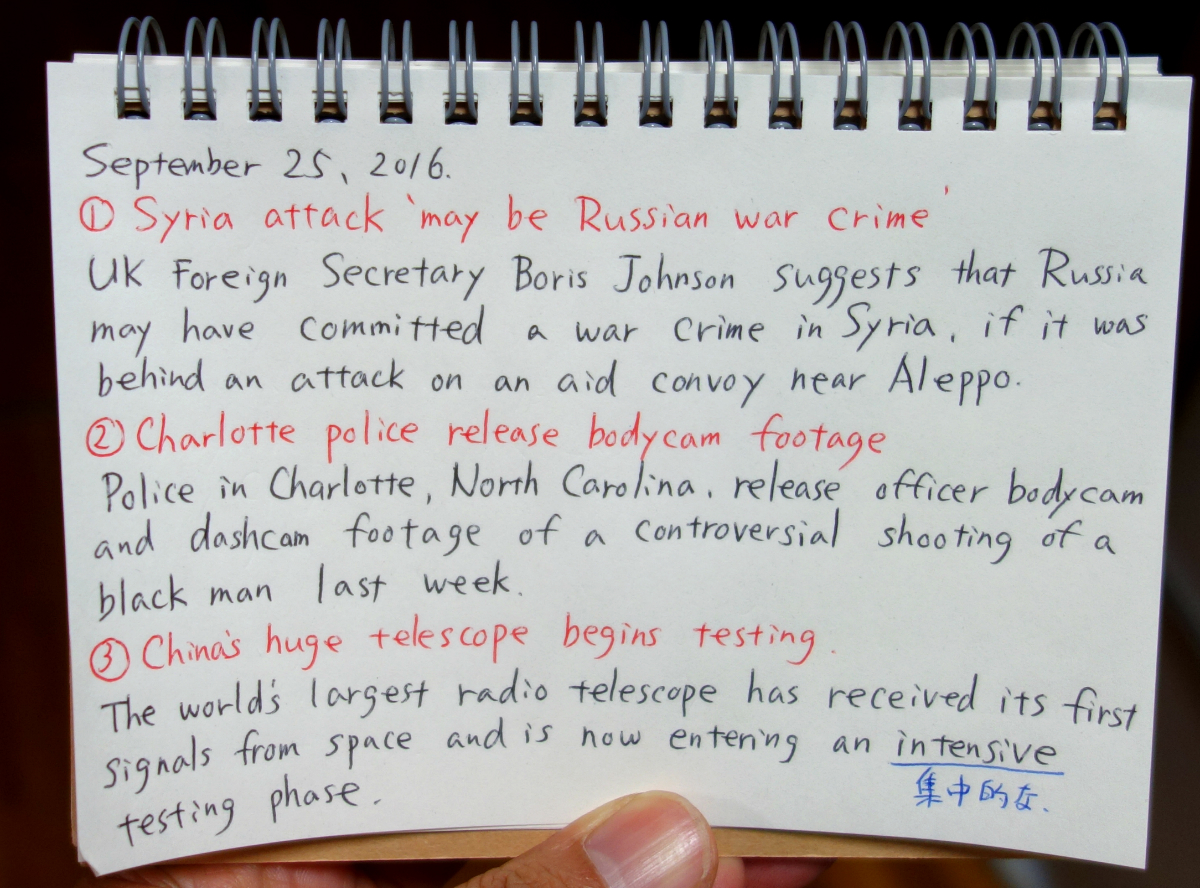 September 25, 2016.
① Syria attack 'may be Russian war crime'
UK Foreign Secretary Boris Johnson suggests that Russia
may have committed a war crime in Syria, if it was
behind an attack on an aid convoy near Aleppo.
② Charlotte police release bodycam footage
Police in Charlotte, North Carolina, release officer bodycam
and dashcam footage of a controversial shooting of a
black man last week.
③ China's huge telescope begins testing.
The world's largest radio telescope has received its first
signals from space and is now entering an intensive
集中的な.
testing phase.